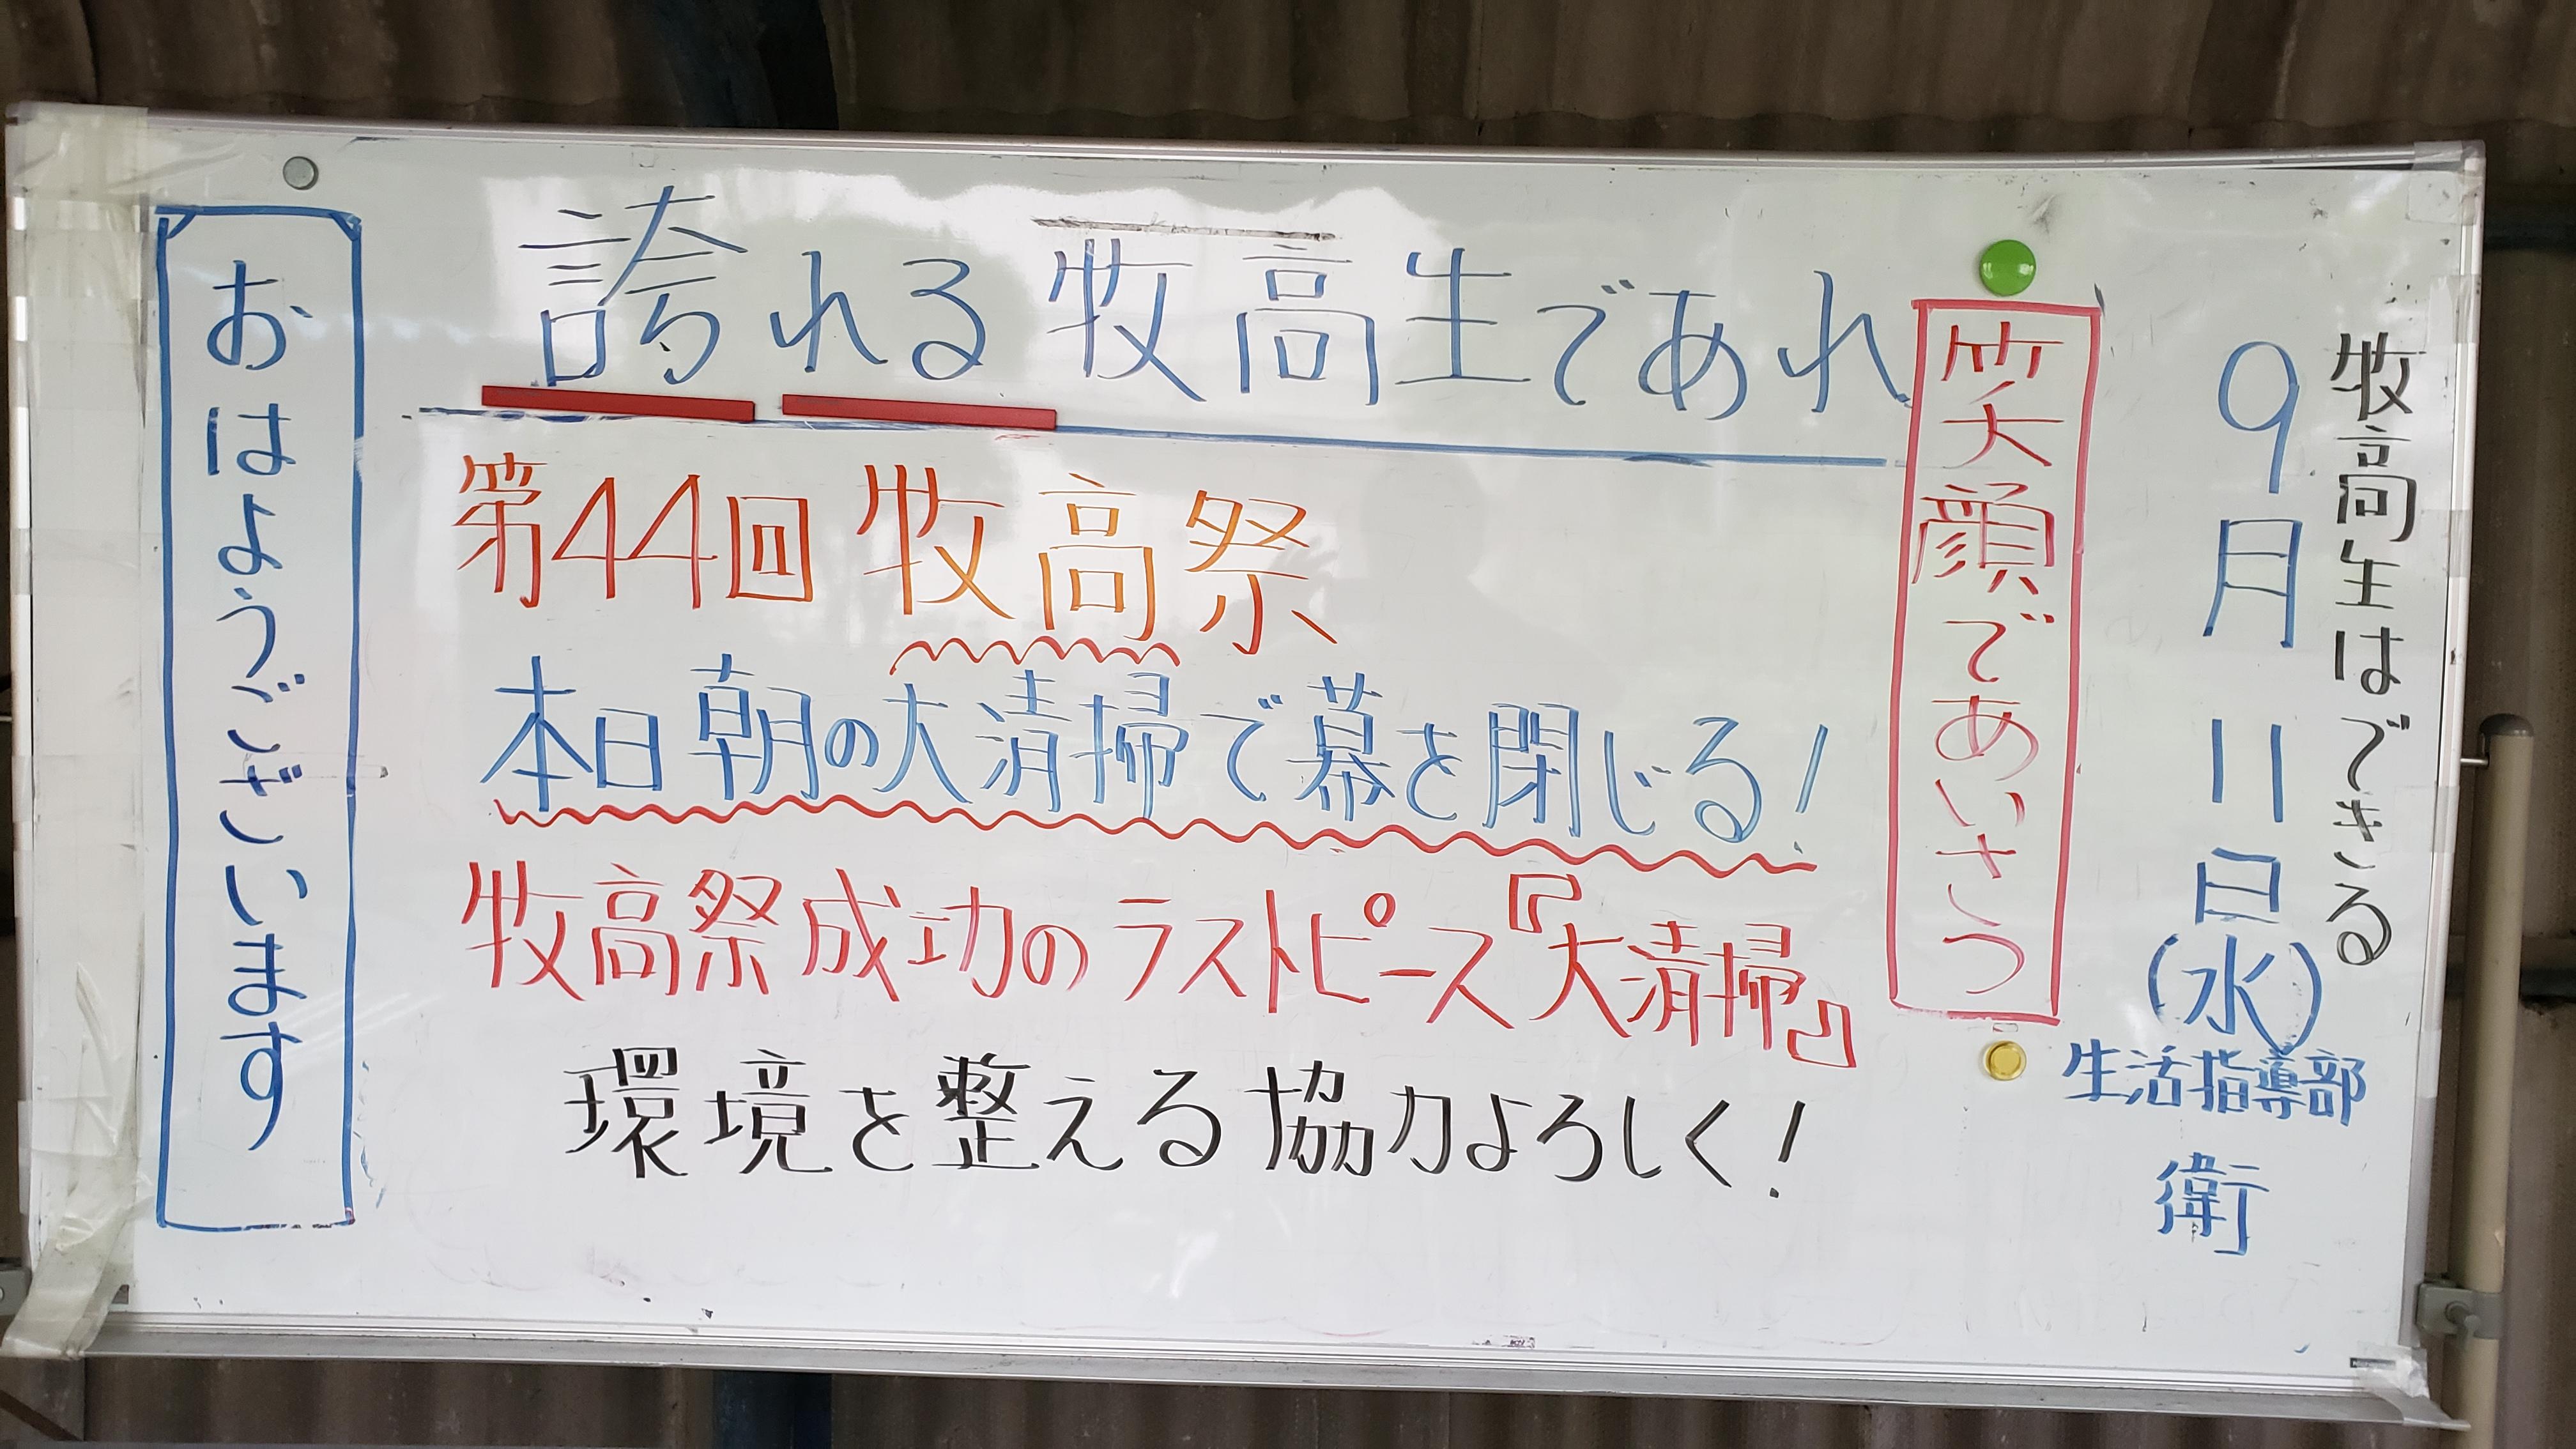 牧高生はできる
9月11日(水)
生活指導部
衛
笑顔であいさつ
誇れる牧高生であれ
第44回 牧高祭
本日朝の大清掃で幕を閉じる!
牧高祭成功のラストピース『大清掃』
環境を整える協力よろしく!
おはようございます